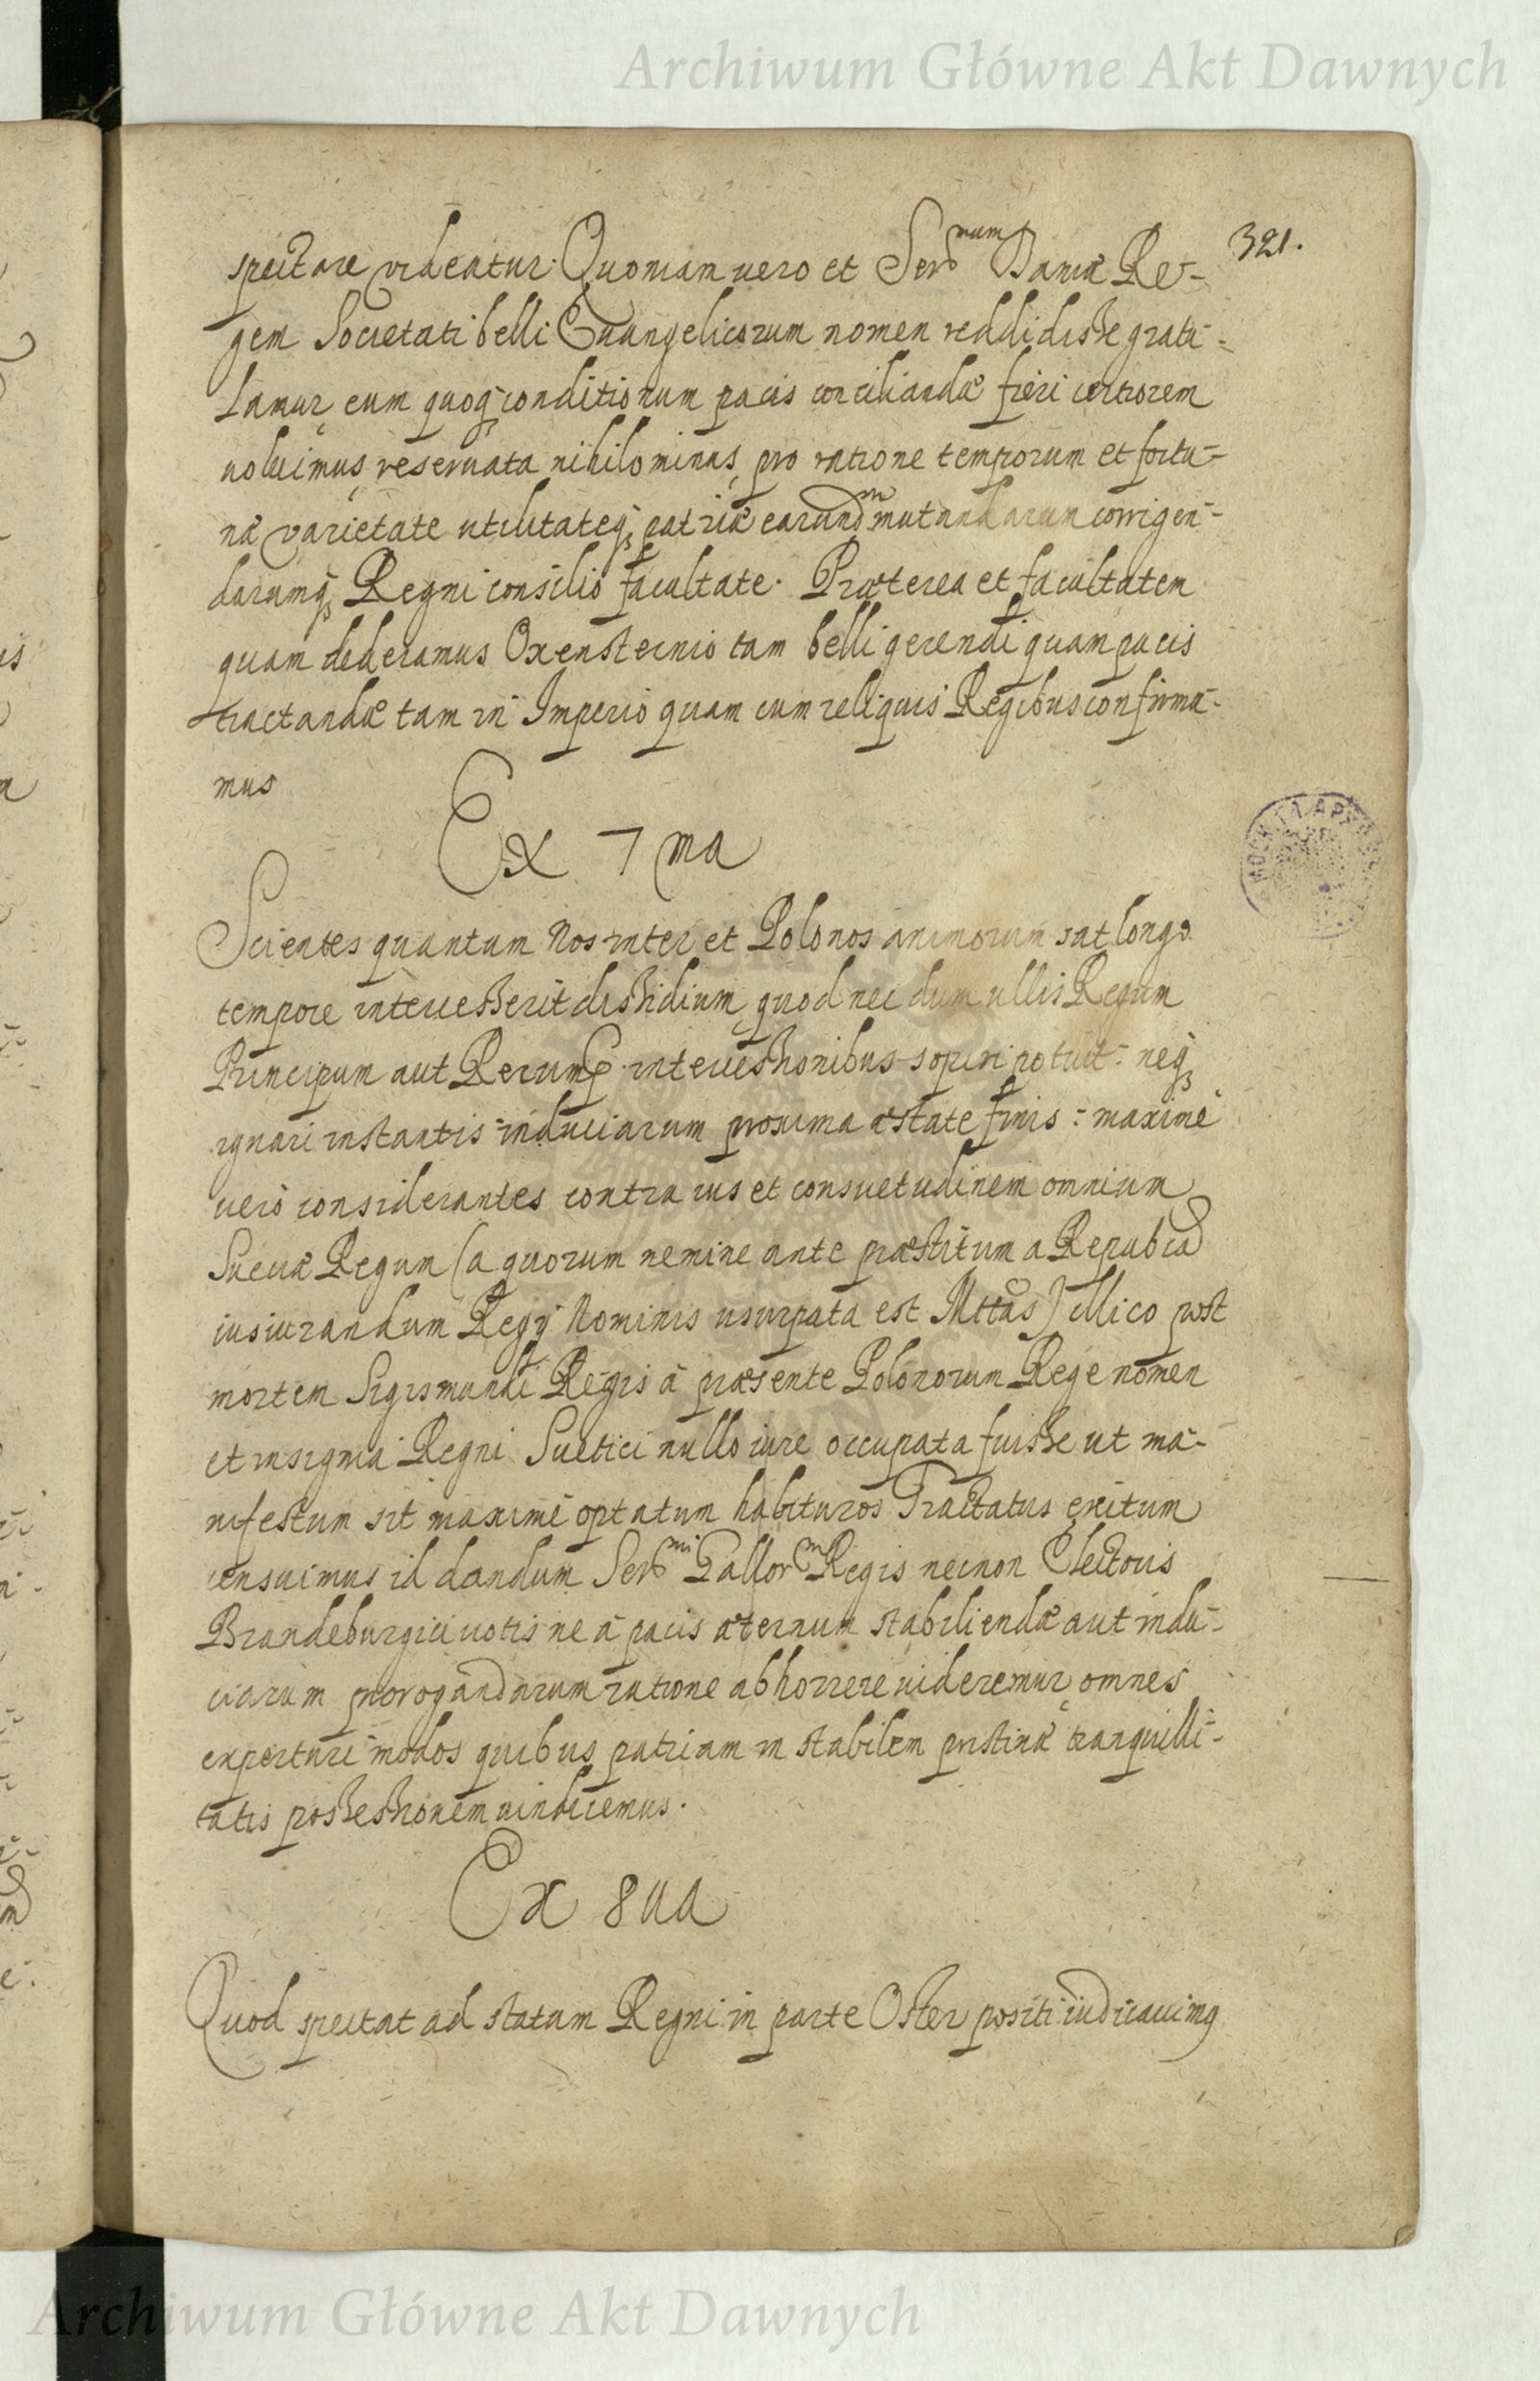 Archiwum Główne Akt Dawnych
321.
spectare videatur. Quoniam vero et Ser^num Daniæ Re-
gem Societati belli Euangelicorum nomen reddidisse gratu-
lamur, eum quoq conditionum pacis conciliandæ fieri certiorem
uoluimus reseruata nihilominus pro ratione temporum et fortu-
næ varietate utilitateq patriæ earund^m mutandarum corrigen-
darumq Regni consilio facultate. Præterea et facultatem
quam dederamus Oxensternio tam belli gerendi quam pacis
tractandæ tam in Imperio quam cum reliquis Regibus confirma-
mus
Ex 7ma
Scientes quantum Nos inter et Polonos animorum sat longo
tempore intercesserit dissidium, quod nec dum ullis Regum
Principum aut Rerump. intercessionibus sopiri potuit: neq
ignari instantis induciarum proxima æstate finis: maxime
vero considerantes contra ius et consuetudinem omnium
Sueciæ Regum (a quorum nemine ante præstitum a Republica
iusiurandum Regij Nominis usurpata est Mttas) illico post
mortem Sigismundi Regis à præsente Polonorum Rege nomen
et insignia Regni Suetici nullo iure occupata fuisse ut ma-
nifestum sit maximè optatum habituros Tractatus exitum
censuimus id dandum Ser^mi Gallor^m Regis necnon Electoris
Brandeburgici uotis ne à pacis æternum stabiliendæ aut indu-
ciarum prorogandarum ratione abhorrere uideremur, omnes
experturi modos quibus patriam in stabilem pristinæ tranquilli-
tatis possessionem uindicemus.
Ex 8ua
Quod spectat ad statum Regni in parte Oster positi iudicauimq
Archiwum Główne Akt Dawnych